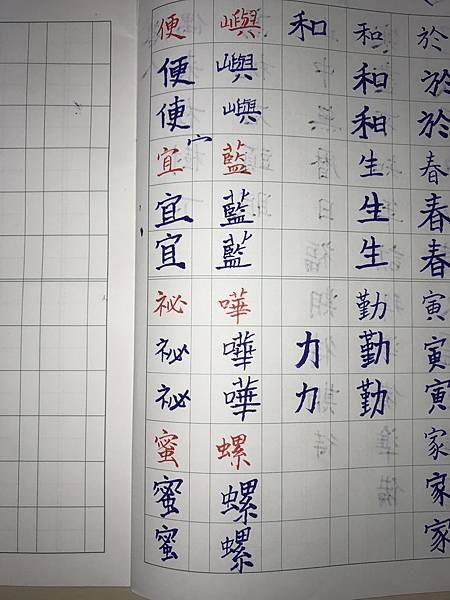 於於於春春春寅寅寅家家家
和和和生生生勤勤勤
和力力
嶼嶼嶼藍藍藍嘩嘩嘩螺螺螺
宀
便便便宜宜宜祕祕祕蜜蜜蜜